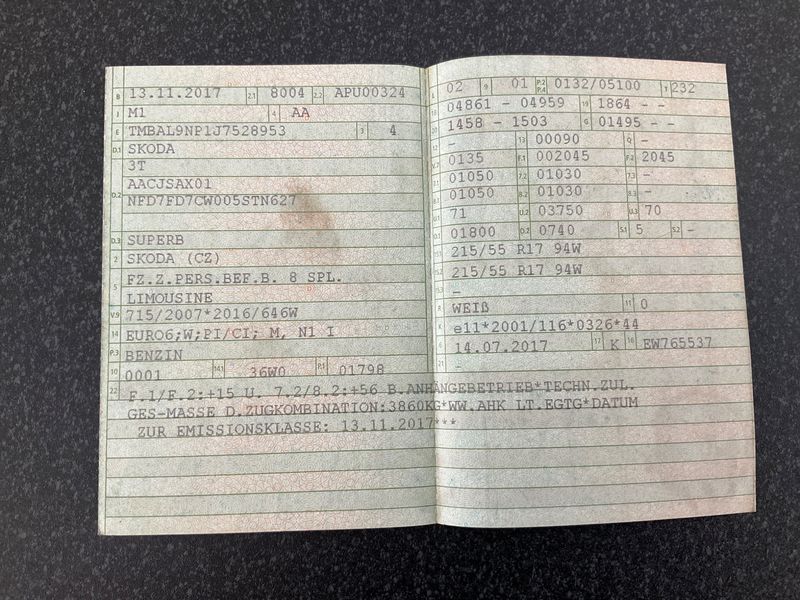 B 13.11.2017 2.1 8004 2.2 APU00324
J M1 4 AA
E TMBAL9NP1J7528953 3 4
D.1 SKODA
3T
D.2 AACJSAX01
NFD7FD7CW005STN627
D.3 SUPERB
2 SKODA (CZ)
5 FZ.Z.PERS.BEF.B. 8 SPL.
LIMOUSINE
V.9 715/2007*2016/646W
14 EURO6;W;PI/CI; M, N1 I
P.3 BENZIN
10 0001 14.1 36W0 P.1 01798
L 02 9 01 P.2 P.4 0132/05100 T 232
18 04861 - 04959 19 1864 - -
20 1458 - 1503 G 01495 - -
12 - 13 00090 Q -
V.7 0135 F.1 002045 F.2 2045
7.1 01050 7.2 01030 7.3 -
8.1 01050 8.2 01030 8.3 -
U.1 71 U.2 03750 U.3 70
O.1 01800 O.2 0740 S.1 5 S.2 -
15.1 215/55 R17 94W
15.2 215/55 R17 94W
15.3 -
R WEIß 11 0
K e11*2001/116*0326*44
6 14.07.2017 17 K 16 EW765537
21 -
22 F.1/F.2:+15 U. 7.2/8.2:+56 B.ANHÄNGEBETRIEB*TECHN.ZUL.
GES-MASSE D.ZUGKOMBINATION:3860KG*WW.AHK LT.EGTG*DATUM
ZUR EMISSIONSKLASSE: 13.11.2017***